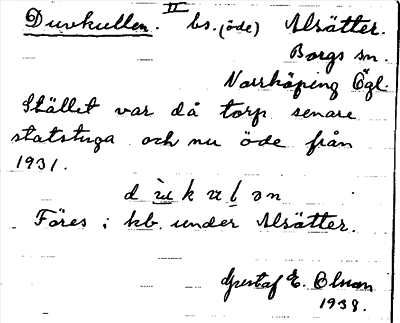 Duvkullen. II bs. (öde) Alsätter.
Borgs sn.
Norrköping Ögl.
Stället var då torp senare
statstuga och nu öde från
1931.
Föres i kb. under Alsätter.
Gustaf E. Olsson
1938.